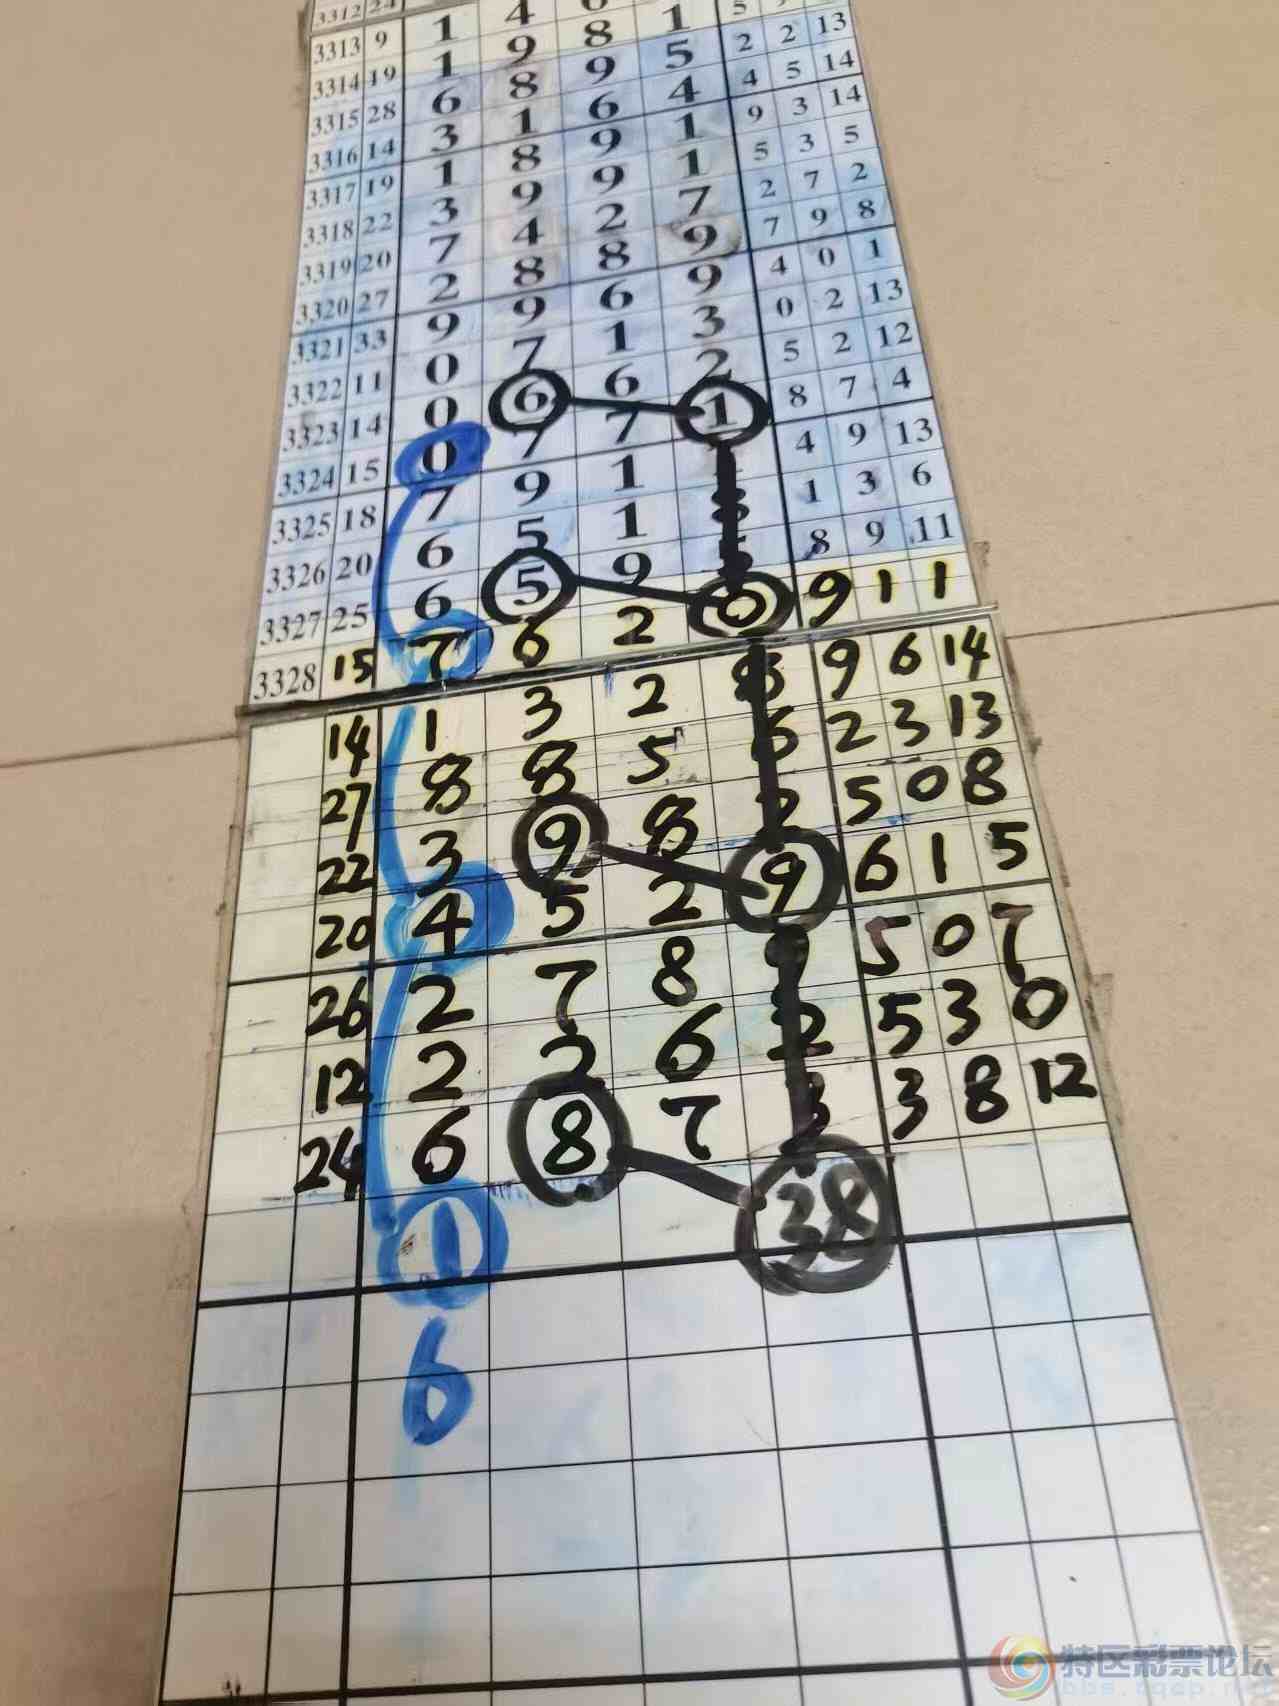 3312 24
3313 9 1 4
3314 19 1 9 8 1 5
3315 28 6 8 9 5 2 2 13
3316 14 3 1 6 4 4 5 14
3317 19 1 8 9 1 9 3 14
3318 22 3 9 9 1 5 3 5
3319 20 7 4 2 7 2 7 2
3320 27 2 8 8 9 7 9 8
3321 33 9 9 6 9 4 0 1
3322 11 0 7 1 3 0 2 13
3323 14 0 6 6 2 5 2 12
3324 15 0 7 7 1 8 7 4
3325 18 7 9 1 4 9 13
3326 20 6 5 1 8 1 3 6
3327 25 6 5 9 5 8 9 11
3328 15 7 6 2 0 9 1 1
14 1 3 2 8 9 6 14
27 8 8 5 6 2 3 13
22 3 9 8 2 5 0 8
20 4 5 2 9 6 1 5
26 2 7 8 9 5 0 7
12 2 2 6 2 5 3 0
24 6 8 7 3 3 8 12
1 38
6
特区彩票论坛